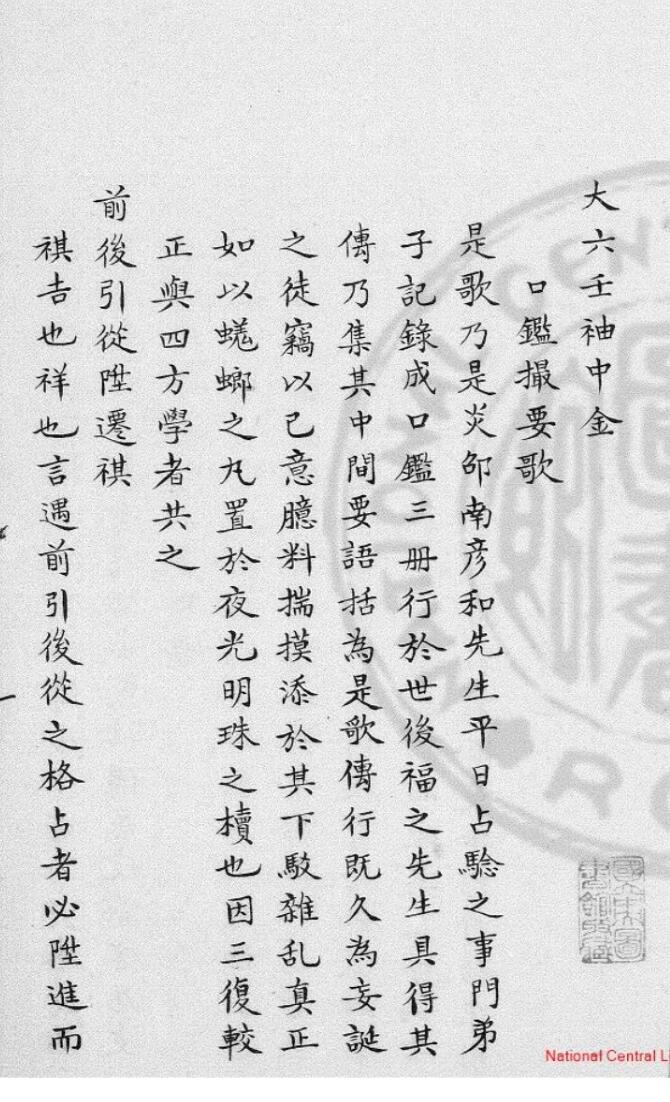 大六壬袖中金
口鑑撮要歌
是歌乃是炎邵南彦和先生平日占驗之事門弟
子記錄成口鑑三册行於世後福之先生具得其
傳乃集其中間要語括為是歌傳行既久為妄誕
之徒竊以己意臆料揣摸添於其下駁雜乱真正
如以蜣螂之丸置於夜光明珠之櫝也因三復較
正與四方學者共之
前後引從陞遷祺
祺吉也祥也言遇前引後從之格占者必陞進而
National Central L